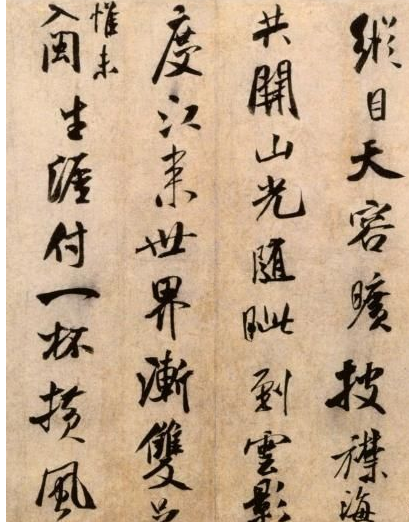 縱目天容曠披襟海
共開山光随眦到雲影
度江來世界漸雙
惟未
入閩生涯付一杯横風